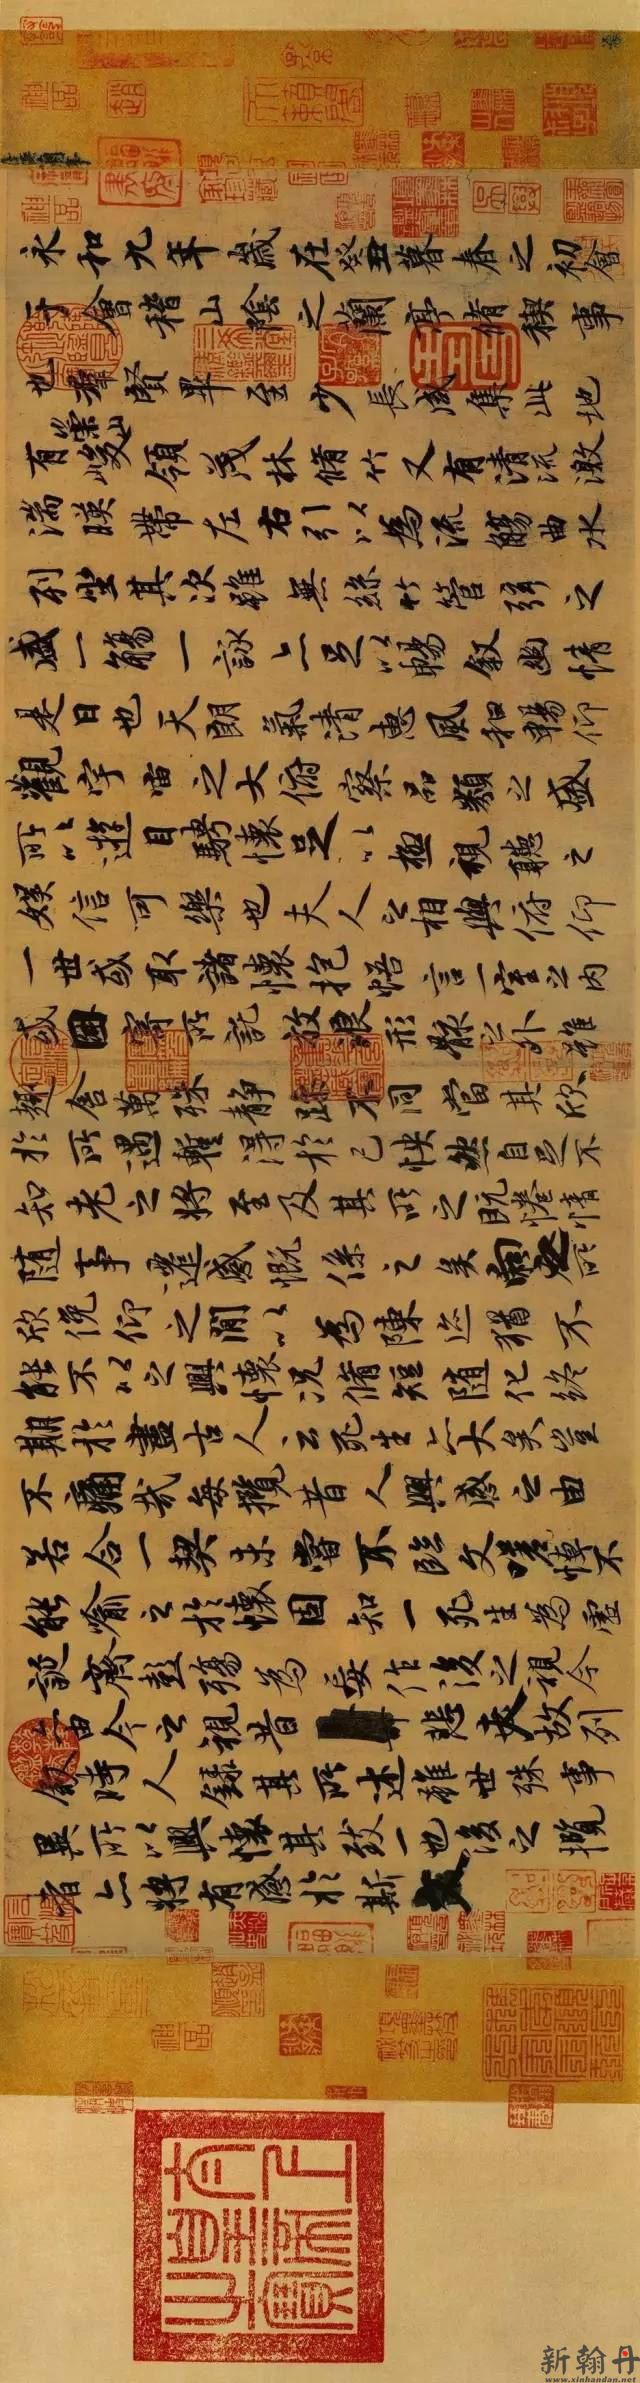 永和九年歲在癸丑暮春之初會
于會稽山陰之蘭亭脩稧事
也群賢畢至少長咸集此地
有崇山峻領茂林脩竹又有清流激
湍暎帶左右引以為流觴曲水
列坐其次雖無絲竹管弦之
盛一觴一詠亦足以暢敘幽情
是日也天朗氣清惠風和暢仰
觀宇宙之大俯察品類之盛
所以遊目騁懷足以極視聽之
娛信可樂也夫人之相與俯仰
一世或取諸懷抱悟言一室之內
或因寄所託放浪形骸之外雖
趣舍萬殊靜躁不同當其欣
於所遇暫得於己怏然自足不
知老之將至及其所之既惓情
隨事遷感慨係之矣向之所
欣俛仰之閒以為陳迹猶不
能不以之興懷況脩短隨化終
期於盡古人云死生亦大矣豈
不痛哉每攬昔人興感之由
若合一契未嘗不臨文嗟悼不
能喻之於懷固知一死生為虛
誕齊彭殤為妄作後之視今
亦由今之視昔悲夫故列
敘時人錄其所述雖世殊事
異所以興懷其致一也後之攬
者亦將有感於斯文
新翰丹
www.xinhandan.net